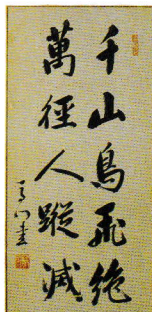 千山鳥飛絶
萬徑人蹤滅